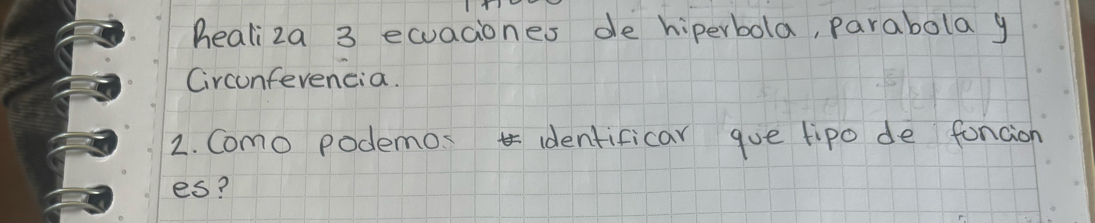 Realiza 3 ecuaciones de hiperbola, parabola y
Circunferencia.
2. Como podemos identificar que tipo de funcion
es?